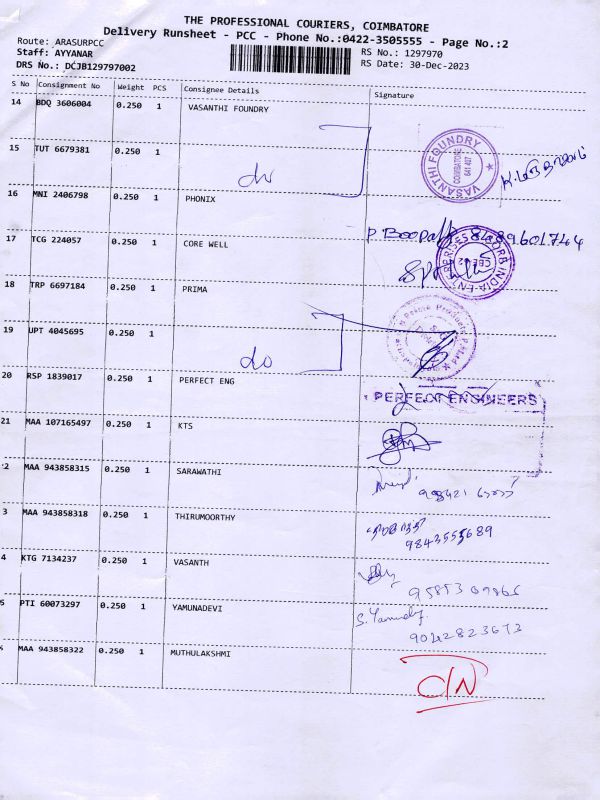 THE PROFESSIONAL COURIERS, COIMBATORE
Delivery Runsheet - PCC - Phone No.:0422-3505555 - Page No.:2
Route: ARASURPCC
Staff: AYYANAR
DRS No.: DCJB129797002
RS No.: 1297970
RS Date: 30-Dec-2023
S No Consignment No Weight PCS Consignee Details Signature
14 BDQ 3606004 0.250 1 VASANTHI FOUNDRY
VASANTHI FOUNDRY COIMBATORE 641 407
15 TUT 6679381 0.250 1 do
16 MNI 2406798 0.250 1 PHONIX
P Boopathy 8489601744
17 TCG 224057 0.250 1 CORE WELL
18 TRP 6697184 0.250 1 PRIMA
19 UPT 4045695 0.250 1 do
20 RSP 1839017 0.250 1 PERFECT ENG
PERFECT ENGINEERS
21 MAA 107165497 0.250 1 KTS
2 MAA 943858315 0.250 1 SARAWATHI
3 MAA 943858318 0.250 1 THIRUMOORTHY
9843555689
4 KTG 7134237 0.250 1 VASANTH
5 PTI 60073297 0.250 1 YAMUNADEVI
S. Yamunadevi
9042823673
MAA 943858322 0.250 1 MUTHULAKSHMI